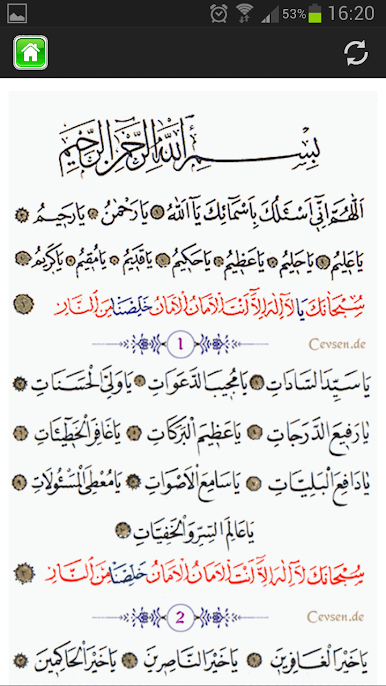 53% 16:20
بِسْمِ اللهِ الرَّحْمٰنِ الرَّحِيمِ
اَللّٰهُمَّ اِنِّى اَسْئَلُكَ بِاَسْمَائِكَ يَا اَللّٰهُ يَا رَحْمٰنُ يَا رَحِيمُ
يَا عَلِيمُ يَا حَلِيمُ يَا عَظِيمُ يَا حَكِيمُ يَا قَدِيمُ يَا مُقِيمُ يَا كَرِيمُ
سُبْحَانَكَ يَا لَآ اِلٰهَ اِلَّا اَنْتَ الْاَمَانُ الْاَمَانُ خَلِّصْنَا مِنَ النَّارِ
1 Cevsen.de
يَا سَيِّدَ السَّادَاتِ يَا مُجِيبَ الدَّعَوَاتِ يَا وَلِىَّ الْحَسَنَاتِ
يَا رَفِيعَ الدَّرَجَاتِ يَا عَظِيمَ الْبَرَكَاتِ يَا غَافِرَ الْخَطِيئَاتِ
يَا دَافِعَ الْبَلِيَّاتِ يَا سَامِعَ الْاَصْوَاتِ يَا مُعْطِىَ الْمَسْئُولَاتِ
يَا عَالِمَ السِّرِّ وَالْخَفِيَّاتِ
سُبْحَانَكَ لَآ اِلٰهَ اِلَّا اَنْتَ الْاَمَانُ الْاَمَانُ خَلِّصْنَا مِنَ النَّارِ
2 Cevsen.de
يَا خَيْرَ الْغَافِرِينَ يَا خَيْرَ النَّاصِرِينَ يَا خَيْرَ الْحَاكِمِينَ